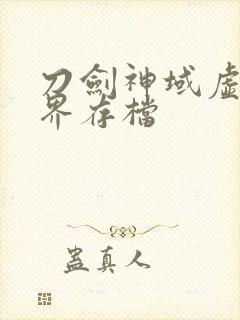 刀劍神域虛
界存檔
蠱真人